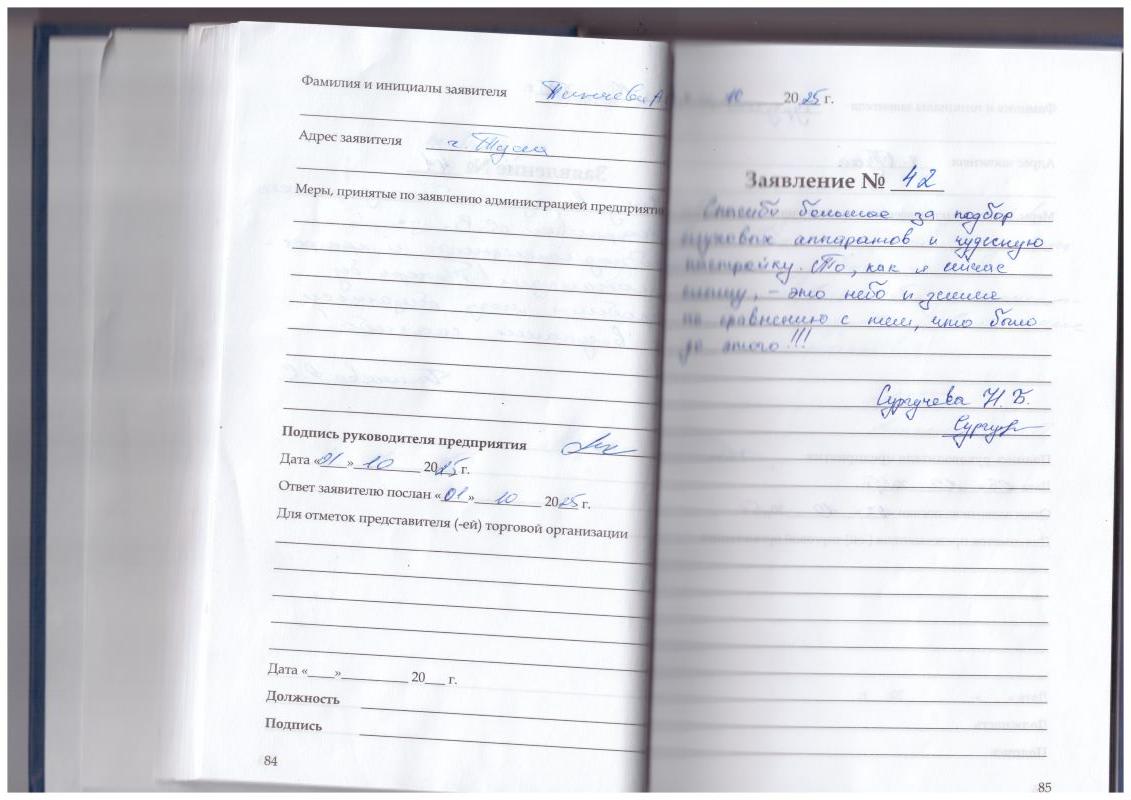 Фамилия и инициалы заявителя
Адрес заявителя г. Тула
Меры, принятые по заявлению администрацией предприяти
Подпись руководителя предприятия
Дата «01» 10 2025 г.
Ответ заявителю послан «01» 10 2025 г.
Для отметок представителя (-ей) торговой организации
Дата «___»__________ 20___ г.
Должность
Подпись
84
10 2025 г.
Заявление № 42
Спасибо большое за подбор
слуховых аппаратов и чудесную
настройку. То, как я сейчас
слышу, – это небо и земля
по сравнению с тем, что было
до этого!!!
Сургучева Н. Б.
85